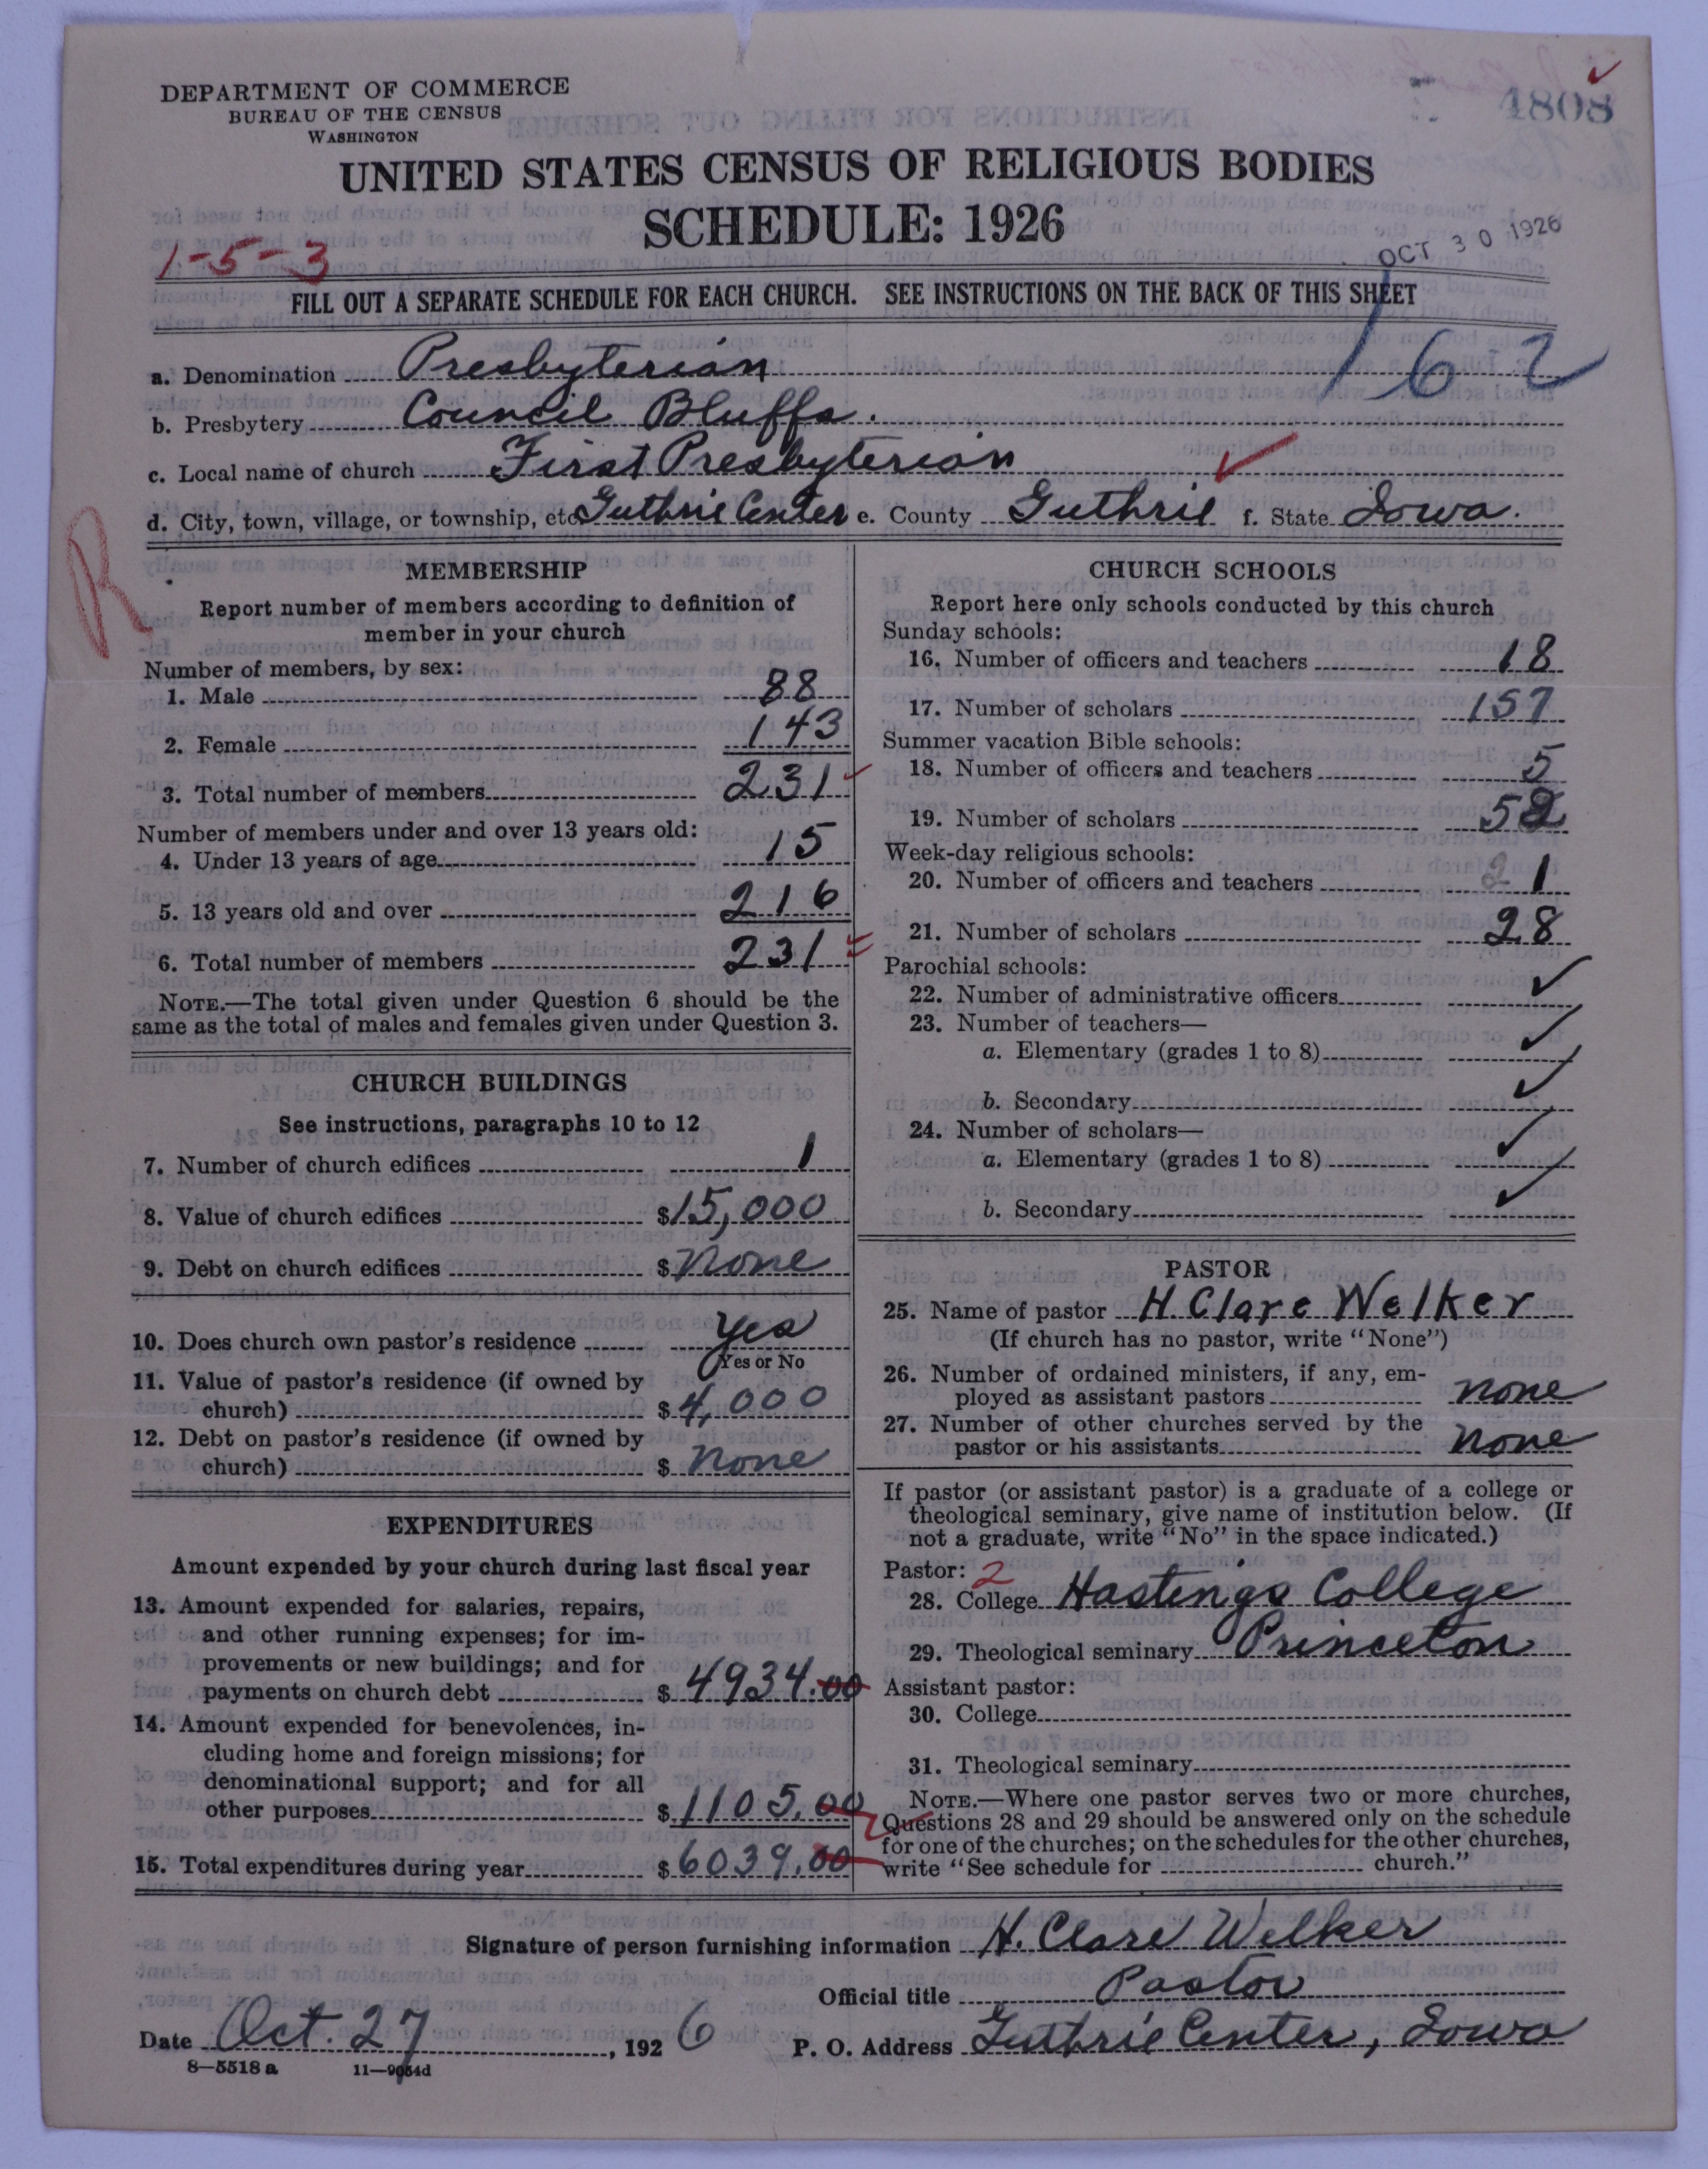 DEPARTMENT OF COMMERCE
BUREAU OF THE CENSUS
WASHINGTON
1808
UNITED STATES CENSUS OF RELIGIOUS BODIES
SCHEDULE: 1926
1-5-3
OCT 30 1926
FILL OUT A SEPARATE SCHEDULE FOR EACH CHURCH. SEE INSTRUCTIONS ON THE BACK OF THIS SHEET
162
a. Denomination Presbyterian
b. Presbytery Council Bluffs.
c. Local name of church First Presbyterian
d. City, town, village, or township, etc Guthrie Center e. County Guthrie f. State Iowa.
R
MEMBERSHIP
Report number of members according to definition of
member in your church
Number of members, by sex:
1. Male 88
2. Female 143
3. Total number of members 231
Number of members under and over 13 years old:
4. Under 13 years of age 15
5. 13 years old and over 216
6. Total number of members 231
NOTE.—The total given under Question 6 should be the
same as the total of males and females given under Question 3.
CHURCH BUILDINGS
See instructions, paragraphs 10 to 12
7. Number of church edifices 1
8. Value of church edifices $15,000
9. Debt on church edifices $ None
10. Does church own pastor's residence Yes
Yes or No
11. Value of pastor's residence (if owned by
church) $4,000
12. Debt on pastor's residence (if owned by
church) $ None
EXPENDITURES
Amount expended by your church during last fiscal year
13. Amount expended for salaries, repairs,
and other running expenses; for im-
provements or new buildings; and for
payments on church debt $4934.00
14. Amount expended for benevolences, in-
cluding home and foreign missions; for
denominational support; and for all
other purposes $1105.00
15. Total expenditures during year $6039.00
CHURCH SCHOOLS
Report here only schools conducted by this church
Sunday schools:
16. Number of officers and teachers 18
17. Number of scholars 157
Summer vacation Bible schools:
18. Number of officers and teachers 5
19. Number of scholars 52
Week-day religious schools:
20. Number of officers and teachers 1
21. Number of scholars 28
Parochial schools:
22. Number of administrative officers ✓
23. Number of teachers—
a. Elementary (grades 1 to 8) ✓
b. Secondary ✓
24. Number of scholars—
a. Elementary (grades 1 to 8) ✓
b. Secondary ✓
PASTOR
25. Name of pastor H. Clare Welker
(If church has no pastor, write "None")
26. Number of ordained ministers, if any, em-
ployed as assistant pastors none
27. Number of other churches served by the
pastor or his assistants none
If pastor (or assistant pastor) is a graduate of a college or
theological seminary, give name of institution below. (If
not a graduate, write "No" in the space indicated.)
Pastor: 2
28. College Hastings College
29. Theological seminary Princeton
Assistant pastor:
30. College
31. Theological seminary
NOTE.—Where one pastor serves two or more churches,
Questions 28 and 29 should be answered only on the schedule
for one of the churches; on the schedules for the other churches,
write "See schedule for church."
Signature of person furnishing information H. Clare Welker
Official title Pastor
Date Oct. 27, 1926 P. O. Address Guthrie Center, Iowa
8—5518 a 11—9054d